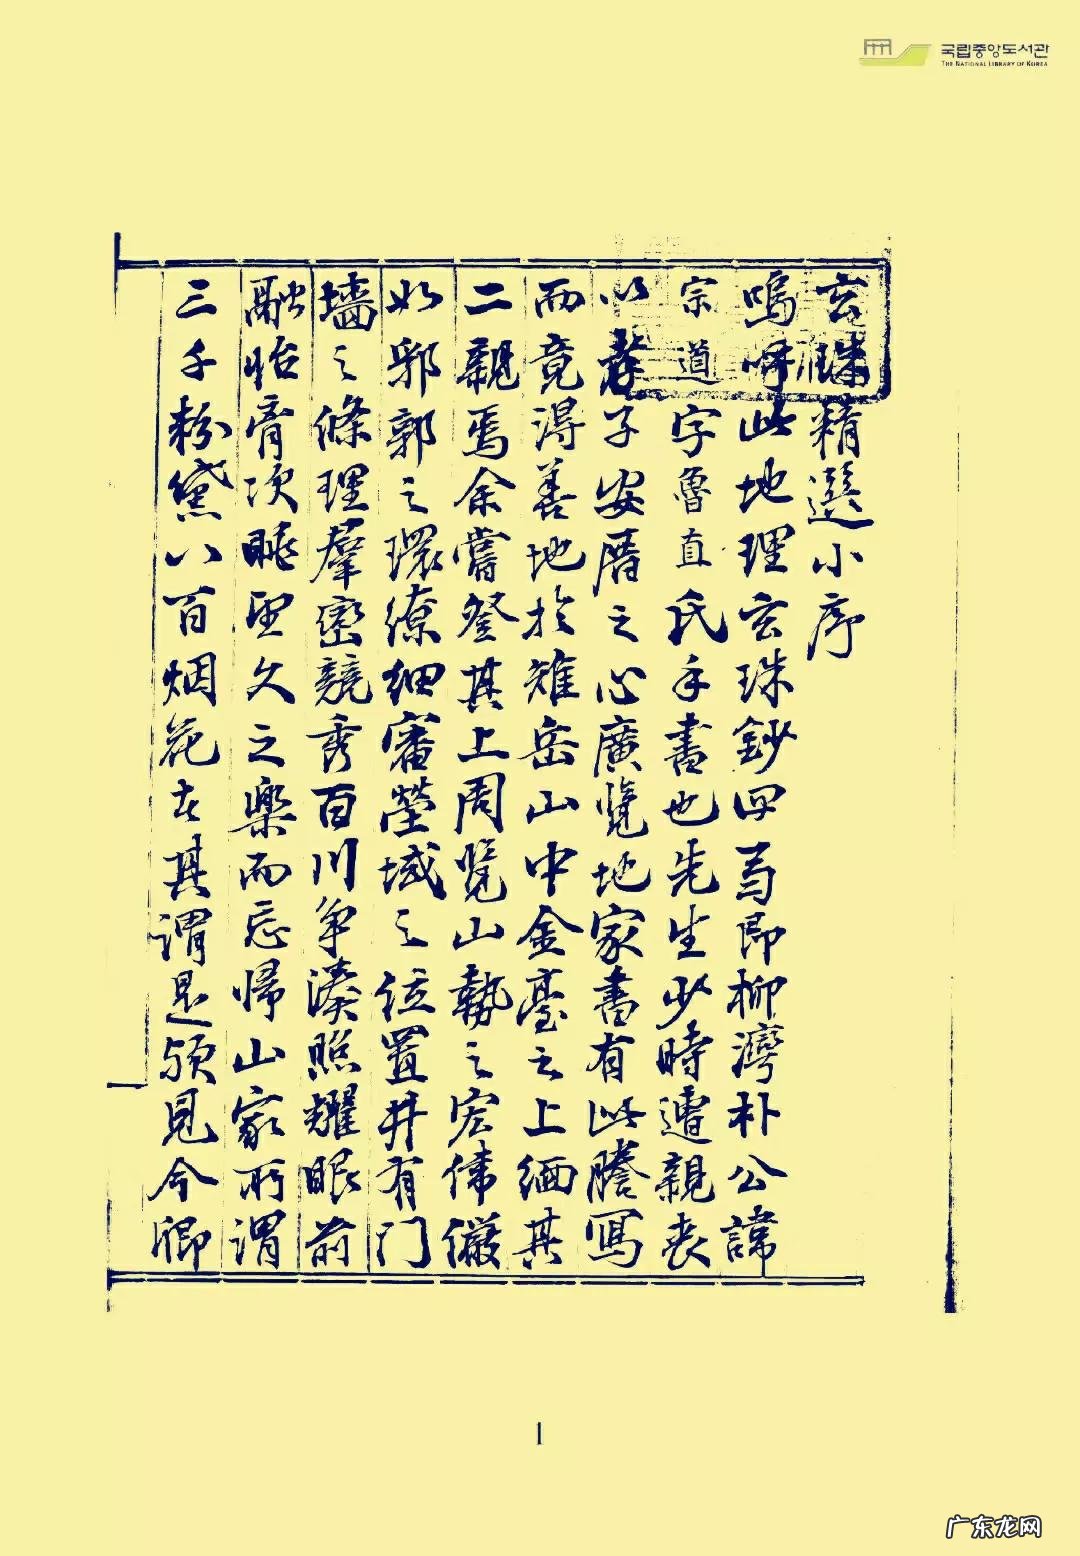 국립중앙도서관
THE NATIONAL LIBRARY OF KOREA
玄珠精選小序
嗚呼此地理玄珠鈔四苟即柳灣朴公諱
宗道字魯直氏手書也先生少時遭親喪
以孝子安厝之心廣覽地家書有此謄寫
而竟得善地於雉岳山中金臺之上緬其
二親焉余嘗登其上周覽山勢之宏偉儼
如郛郭之環繚細審塋域之位置井有門
墻之條理羣巒競秀百川爭湊照耀眼前
融怡膏次眺望久之樂而忘歸山家所謂
三千粉黛八百烟花在其謂是頋見今卿
1
广东龙网